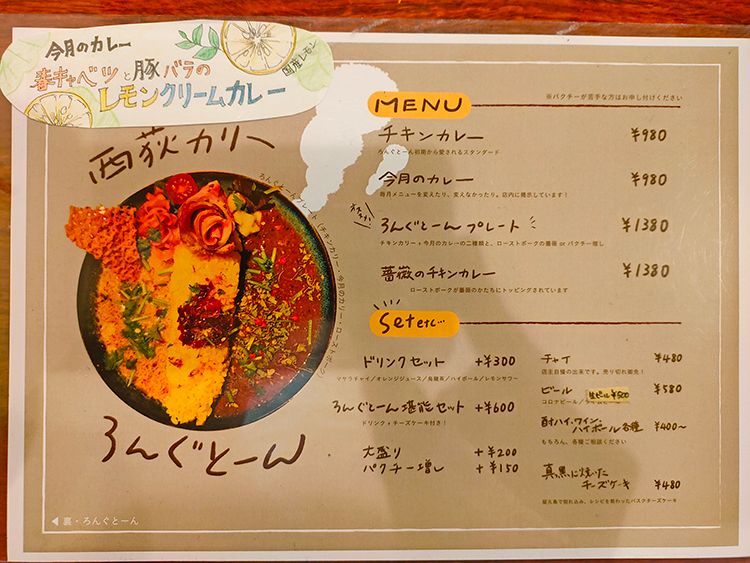 今月のカレー
春キャベツと豚バラの
レモンクリームカレー
国産レモン
西荻カリー
ろんぐとーんプレート（チキンカリー・今月のカリー・ローストポーク）
ろんぐとーん
◀ 裏・ろんぐとーん
MENU
※パクチーが苦手な方はお申し付けください
チキンカレー ¥980
ろんぐとーん初期から愛されるスタンダード
今月のカレー ¥980
毎月メニューを変えたり、変えなかったり。店内に掲示しています！
ろんぐとーんプレート ¥1380
チキンカリー＋今月のカレーの二種類と、ローストポークの薔薇 or パクチー増し
薔薇のチキンカレー ¥1380
ローストポークが薔薇のかたちにトッピングされています
Set etc…
ドリンクセット +¥300
マサラチャイ／オレンジジュース／烏龍茶／ハイボール／レモンサワー
ろんぐとーん堪能セット +¥600
ドリンク＋チーズケーキ付き！
大盛り +¥200
パクチー増し +¥150
チャイ ¥480
店主自慢の出来です。売り切れ御免！
ビール 生ビール ¥500 ¥580
コロナビール／
酎ハイ・ワイン・
ハイボール各種 ¥400〜
もちろん、各種ご相談ください
真っ黒に焼いた
チーズケーキ ¥480
屋久島で惚れ込み、レシピを教わったバスクチーズケーキ